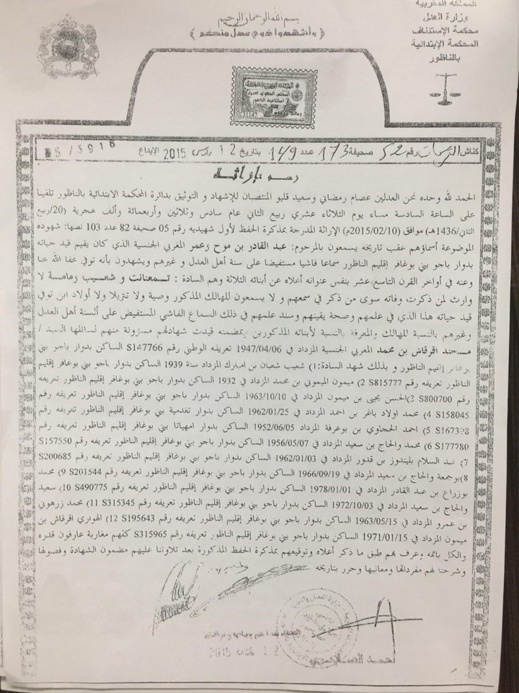 المملكة المغربية
وزارة العدل
محكمة الإستئناف
المحكمة الإبتدائية
بالناظور
بسم الله الرحمان الرحيم
﴿ وأشهدوا ذوي عدل منكم ﴾
كناش رقم 52 صحيفة 173 عدد 149 بتاريخ 12 مارس 2015 الإيداع
رسم إراثة
الحمد لله وحده نحن العدلين عصام رمضاني وسعيد قلبو المنتصبان للإشهاد و التوثيق بدائرة المحكمة الابتدائية بالناظور تلقينا
على الساعة السادسة مساء يوم الثلاثاء عشري ربيع الثاني عام سادس وثلاثين وأربعمائة وألف هجرية (20/ربيع
الثاني/1436هـ) موافق (2015/02/10م) الإراثة المدرجة بمذكرة الحفظ لأول شهيديه رقم 05 صحيفة 82 عدد 103 نصها: شهوده
الموضوعة أسماؤهم عقب تاريخه يسمعون بالمرحوم: عبد القادر بن موح زعمر المغربي الجنسية الذي كان يقيم قيد حياته
بدوار باجو بني بوغافر إقليم الناظور سماعا فاشيا مستفيضا على ألسنة أهل العدل و غيرهم ويشهدون بأنه توفي عفا الله عنا
وعنه في أواخر القرن التاسع عشر بنفس عنوانه أعلاه عن أبنائه الثلاثة وهم السادة : تسمعنانت و شعيب وهامسة لا
وارث لمن ذكرت وفاته سوى من ذكر في سمعهم و لا يسمعون للهالك المذكور وصية ولا تنزيلا ولا أولاد ابن توفي
قيد حياته هذا الذي في علمهم وصحة يقينهم وسند علمهم في ذلك السماع الفاشي المستفيض على ألسنة أهل العدل
وغيرهم بالنسبة للهالك والمعرفة بالنسبة لأبنائه المذكورين بمضمنه قيدت شهادتهم مسؤولة منهم لسائلها السيد /
محند اقرقاش بن محمد المغربي الجنسية المزداد في 1947/04/06 تعريفه الوطني رقم S147766 الساكن بدوار باجو بني
بوغافر إقليم الناظور و بذلك شهد السادة:1) شعيب شعبان بن امبارك المزداد سنة 1939 الساكن بدوار باجو بني بوغافر إقليم
الناظور تعريفه رقم S815777 2) ميمون اليموني بن محمد المزداد في 1932 الساكن بدوار باجو بني بوغافر إقليم الناظور تعريفه
رقم S800700 3) الحسن يحيى بن ميمون المزداد في 1963/10/10 الساكن بدوار باجو بني بوغافر إقليم الناظور تعريفه رقم
S158045 4) محمد اولاد باغر بن احمد المزداد في 1962/01/25 الساكن بدوار تغدمية بني بوغافر إقليم الناظور تعريفه رقم
5) احمد الحنحاوي بن بوعرفة المزداد في 1952/06/05 الساكن بدوار امهياتا بني بوغافر إقليم الناظور تعريفه رقم
S177780 6) محمد والحاج بن سعيد المزداد في 1956/05/07 الساكن بدوار باجو بني بوغافر إقليم الناظور تعريفه رقم S157550
7) عبد السلام بن قدور المزداد في 1962/01/03 الساكن بدوار باجو بني بوغافر إقليم الناظور تعريفه رقم S200685
8) بوجمعة والحاج بن سعيد المزداد في 1966/09/19 الساكن بدوار باجو بني بوغافر إقليم الناظور تعريفه رقم S201544 9) محمد
بوزراع بن عبد القادر المزداد في 1978/01/01 الساكن بدوار باجو بني بوغافر إقليم الناظور تعريفه رقم S490775 10) سعيد
والحاج بن سعيد المزداد في 1972/10/03 الساكن بدوار باجو بني بوغافر إقليم الناظور تعريفه رقم S315345 11) محمد زرهوني
بن عمرو المزداد في 1963/05/15 الساكن بدوار باجو بني بوغافر إقليم الناظور تعريفه رقم S195643 12) الهواري اقرقاش بن
ميمون المزداد في 1971/01/15 الساكن بدوار باجو بني بوغافر إقليم الناظور تعريفه رقم S315965 كلهم مغاربة عارفون قدره
والكل بأتمه وعرف بهم طبق ما ذكر أعلاه وتوقيعهم بمذكرة الحفظ المذكورة بعد تلاوتنا عليهم مضمون الشهادة وفصولها
وشرحنا لهم مفرداتها ومعانيها وحرر بتاريخه